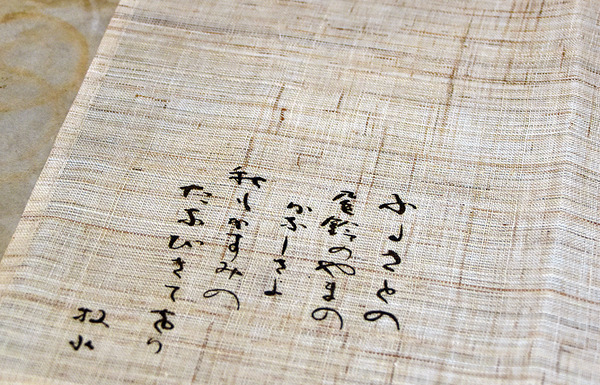 ふるさとの
尾鈴のやまの
かなしさよ
秋もかすみの
たなびきてをり
牧水